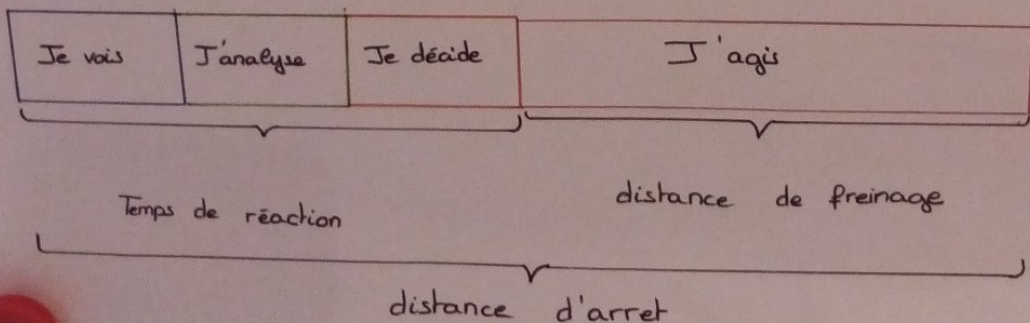 Je vois J'analyse Je décide J'agis
Temps de réaction distance de freinage
distance d'arret